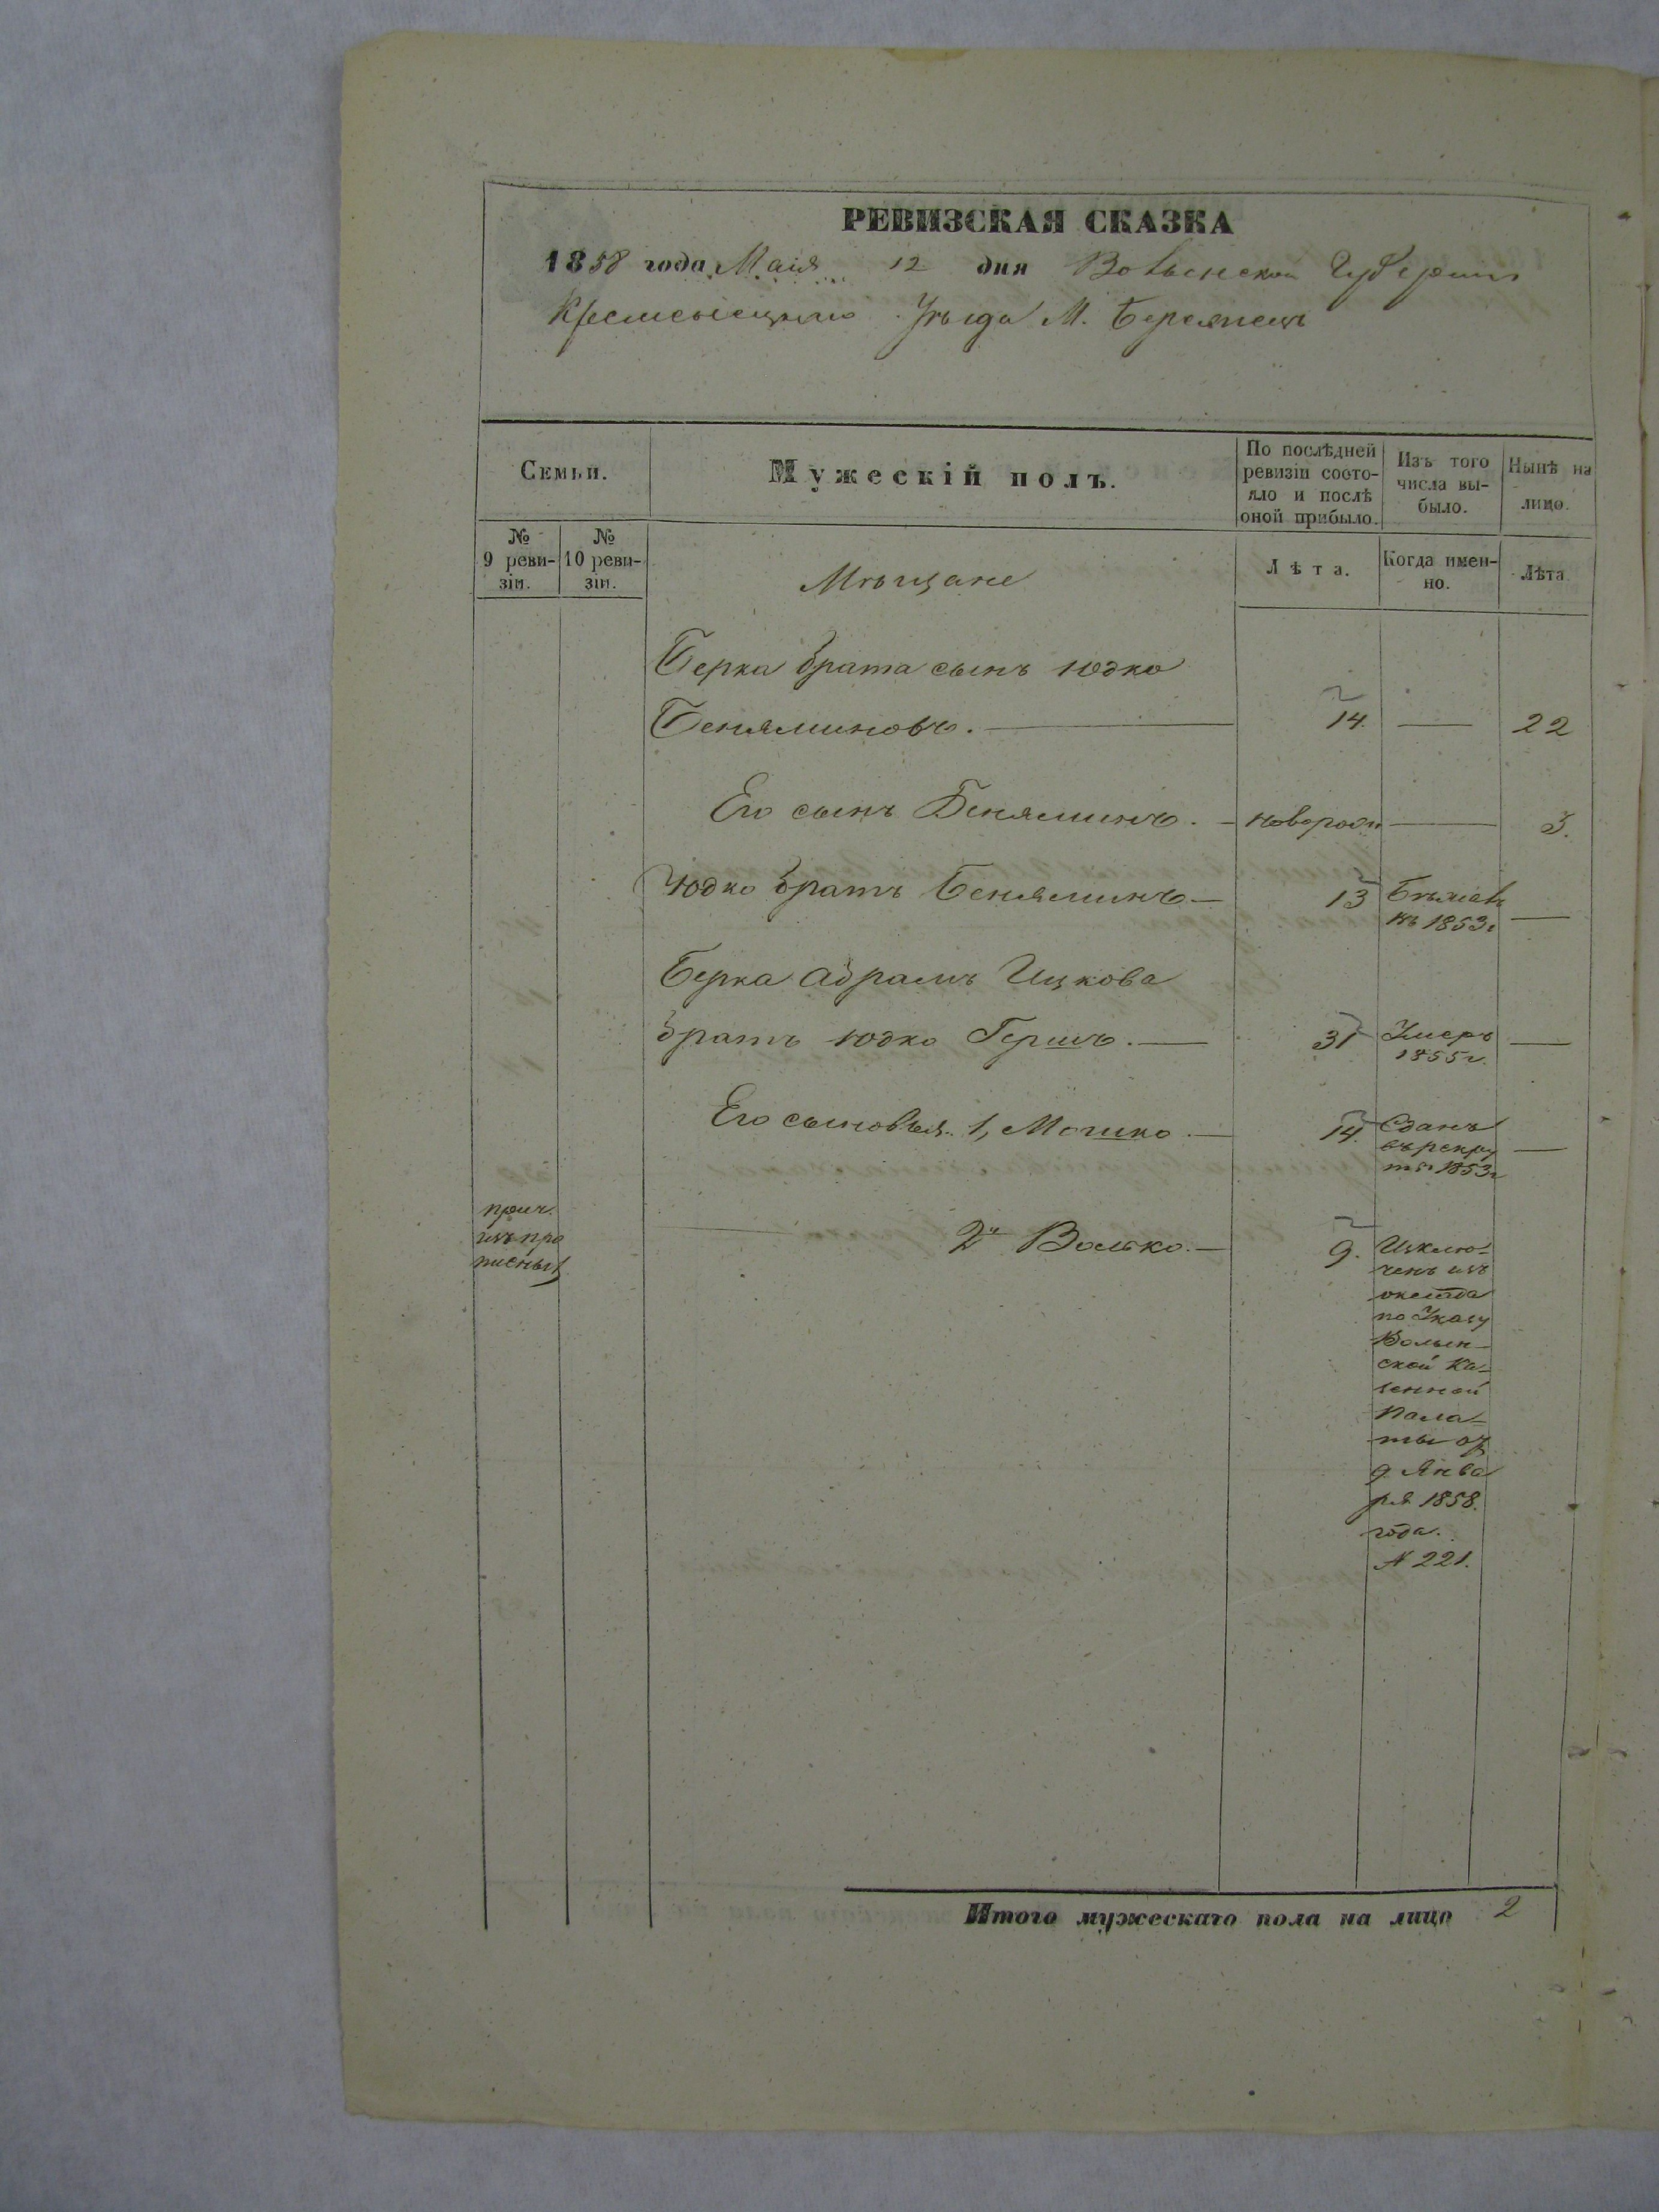 РЕВИЗСКАЯ СКАЗКА
1858 года Маія 12 дня Волынской Губерніи
Кременецкаго Уѣзда М. Бережецъ
Семьи.
Мужескій полъ.
По послѣдней ревизіи состо-
яло и послѣ
оной прибыло.
Изъ того
числа вы-
было.
Нынѣ на
лицо.
№
9 реви-
зіи.
№
10 реви-
зіи.
Мѣщане
Лѣта.
Когда имен-
но.
Лѣта
Берка брата сынъ Юдко
Беняминовъ. — 14. — 22
Его сынъ Беняминъ. — новорож — 3.
Юдко братъ Беняминъ — 13 Бѣжав
въ 1853г —
Берка Абрамъ Ицкова
братъ Юдко Гершъ. — 31 Умеръ
1855г. —
Его сыновья. 1, Мошко. — 14 Сданъ
въ рекру
ты 1853г —
прич.
изъ про
писных
2й Волько. — 9. Исклю-
ченъ изъ
оклада
по Указу
Волын-
ской Ка-
зенной
Пала-
ты от
9 Янва
ря 1858.
года.
№ 221.
Итого мужескаго пола на лицо 2